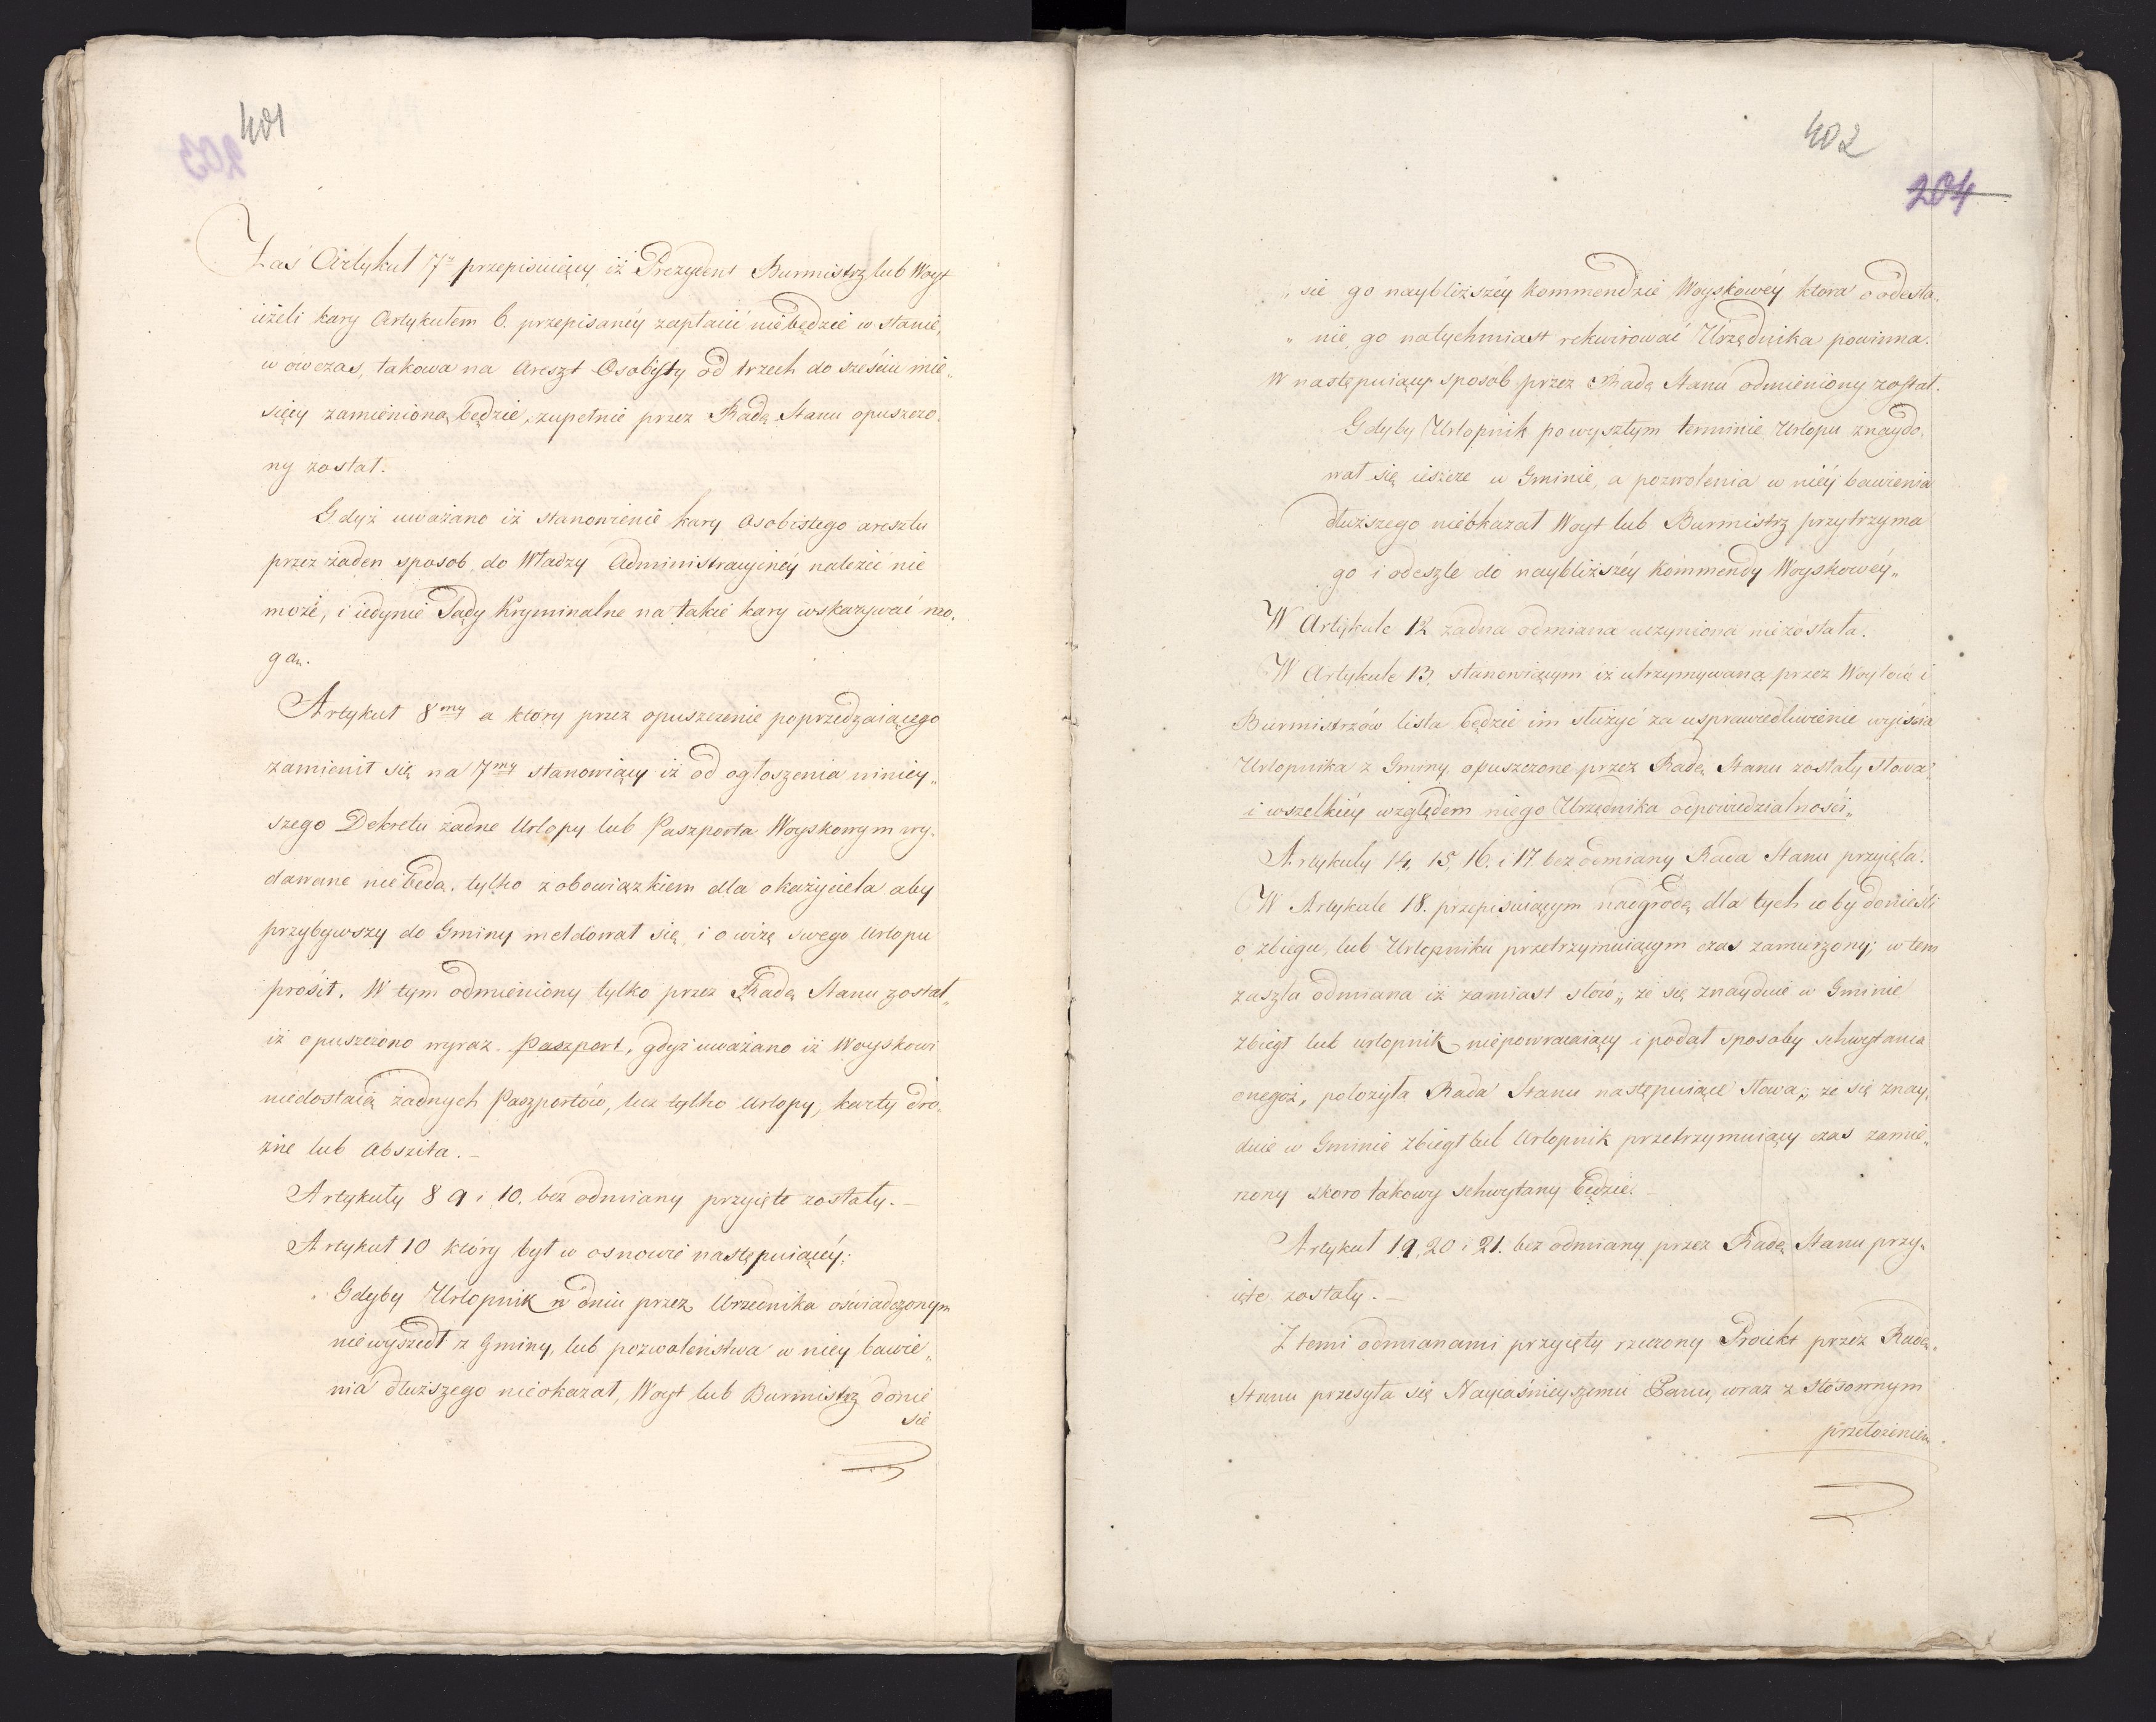 401
203
Zaś Artykuł 7y przepisuiący iż Prezydent Burmistrz lub Woyt
ieżeli kary Artykułem 6. przepisanéy zapłacić niebędzie w stanie,
w owczas, takowa na Areszt Osobisty od trzech do sześciu mie„
sięcy zamienioną będzie, zupełnie przez Radę Stanu opuszczo„
ny został.
Gdyż uważano iż stanowienie kary Osobistego aresztu
przez żaden sposob do Władzy Administracyinéy należéć nie
może, i iedynie Sądy Kryminalne na takie kary wskazywać mo„
gą.
Artykuł 8my a ktory przez opuszczenie poprzedzaiącego
zamienił się na 7my stanowiący iż od ogłoszenia niniey„
szego Dekretu żadne Urlopy lub Paszporta Woyskowym wy„
dawane niebędą, tylko z obowiązkiem dla okaziciela aby
przybywszy do Gminy meldował się, i o wizę swego Urlopu
prosił. W tym odmieniony tylko przez Radę Stanu został„
iż opuszczono wyraz Paszport, gdyż uważano iż Woyskowi
niedostaią żadnych Paszportów, lecz tylko Urlopy, karty dro„
żne lub Abszita. –
Artykuły 8 9 i 10. bez odmiany przyięte zostały. –
Artykuł 10 który był w osnowie następuiącéy:
„ Gdyby Urlopnik w dniu przez Urzednika oświadczonym
niewyszedł z Gminy, lub pozwoleństwa w niey bawie„
nia dłuższego nieokazał, Woyt lub Burmistrz donie
sie
402
204
„ sie go naybliższéy Kommendzie Woyskowéy ktora o odesła„
„ nie go natychmiast rekwirować Urzędnika powinna.
W następuiący sposob przez Radę Stanu odmieniony został.
Gdyby Urlopnik po wyszłym terminie Urlopu znaydo„
wał się ieszcze w Gminie, a pozwolenia w niéy bawienia
dłuższego nieokazał Woyt lub Burmistrz przytrzyma
go i odeszle do naybliższéy Kommendy Woyskowéy„
W Artykule 12 żadna odmiana uczyniona niezostała.
W Artykule 13. stanowiącym iż utrzymywaną przez Woytów i
Burmistrzów lista będzie im służyć za usprawiedliwienie wyiścia
Urlopnika z Gminy opuszczone przez Radę Stanu zostały słowa„
i wszelkiéy względem niego Urzędnika odpowiedzialności„
Artykuły 14, 15, 16. i 17. bez odmiany Rada Stanu przyięła.
W Artykule 18. przepisuiącym nadgrodę dla tych coby donieśli
o zbiegu, lub Urlopniku przetrzymuiącym czas zamierzony; w tem
zaszła odmiana iż zamiast słów„ że się znayduie w Gminie
zbiegł lub urlopnik niepowracaiący i podał sposoby schwytania
onegoż, położyła Rada Stanu następuiące słowa„ że się znay„
duie w Gminie zbiegł lub Urlopnik przetrzymuiący czas zamie„
rzony skoro takowy schwytany będzie. –
Artykuł 19, 20 i 21. bez odmiany przez Radę Stanu przy„
ięte zostały. –
Z temi odmianami przyięty rzeczony Proiekt przez Radę„
Stanu przesyła się Nayiaśnieyszemu Panu, wraz z stosownym
przełożeniem